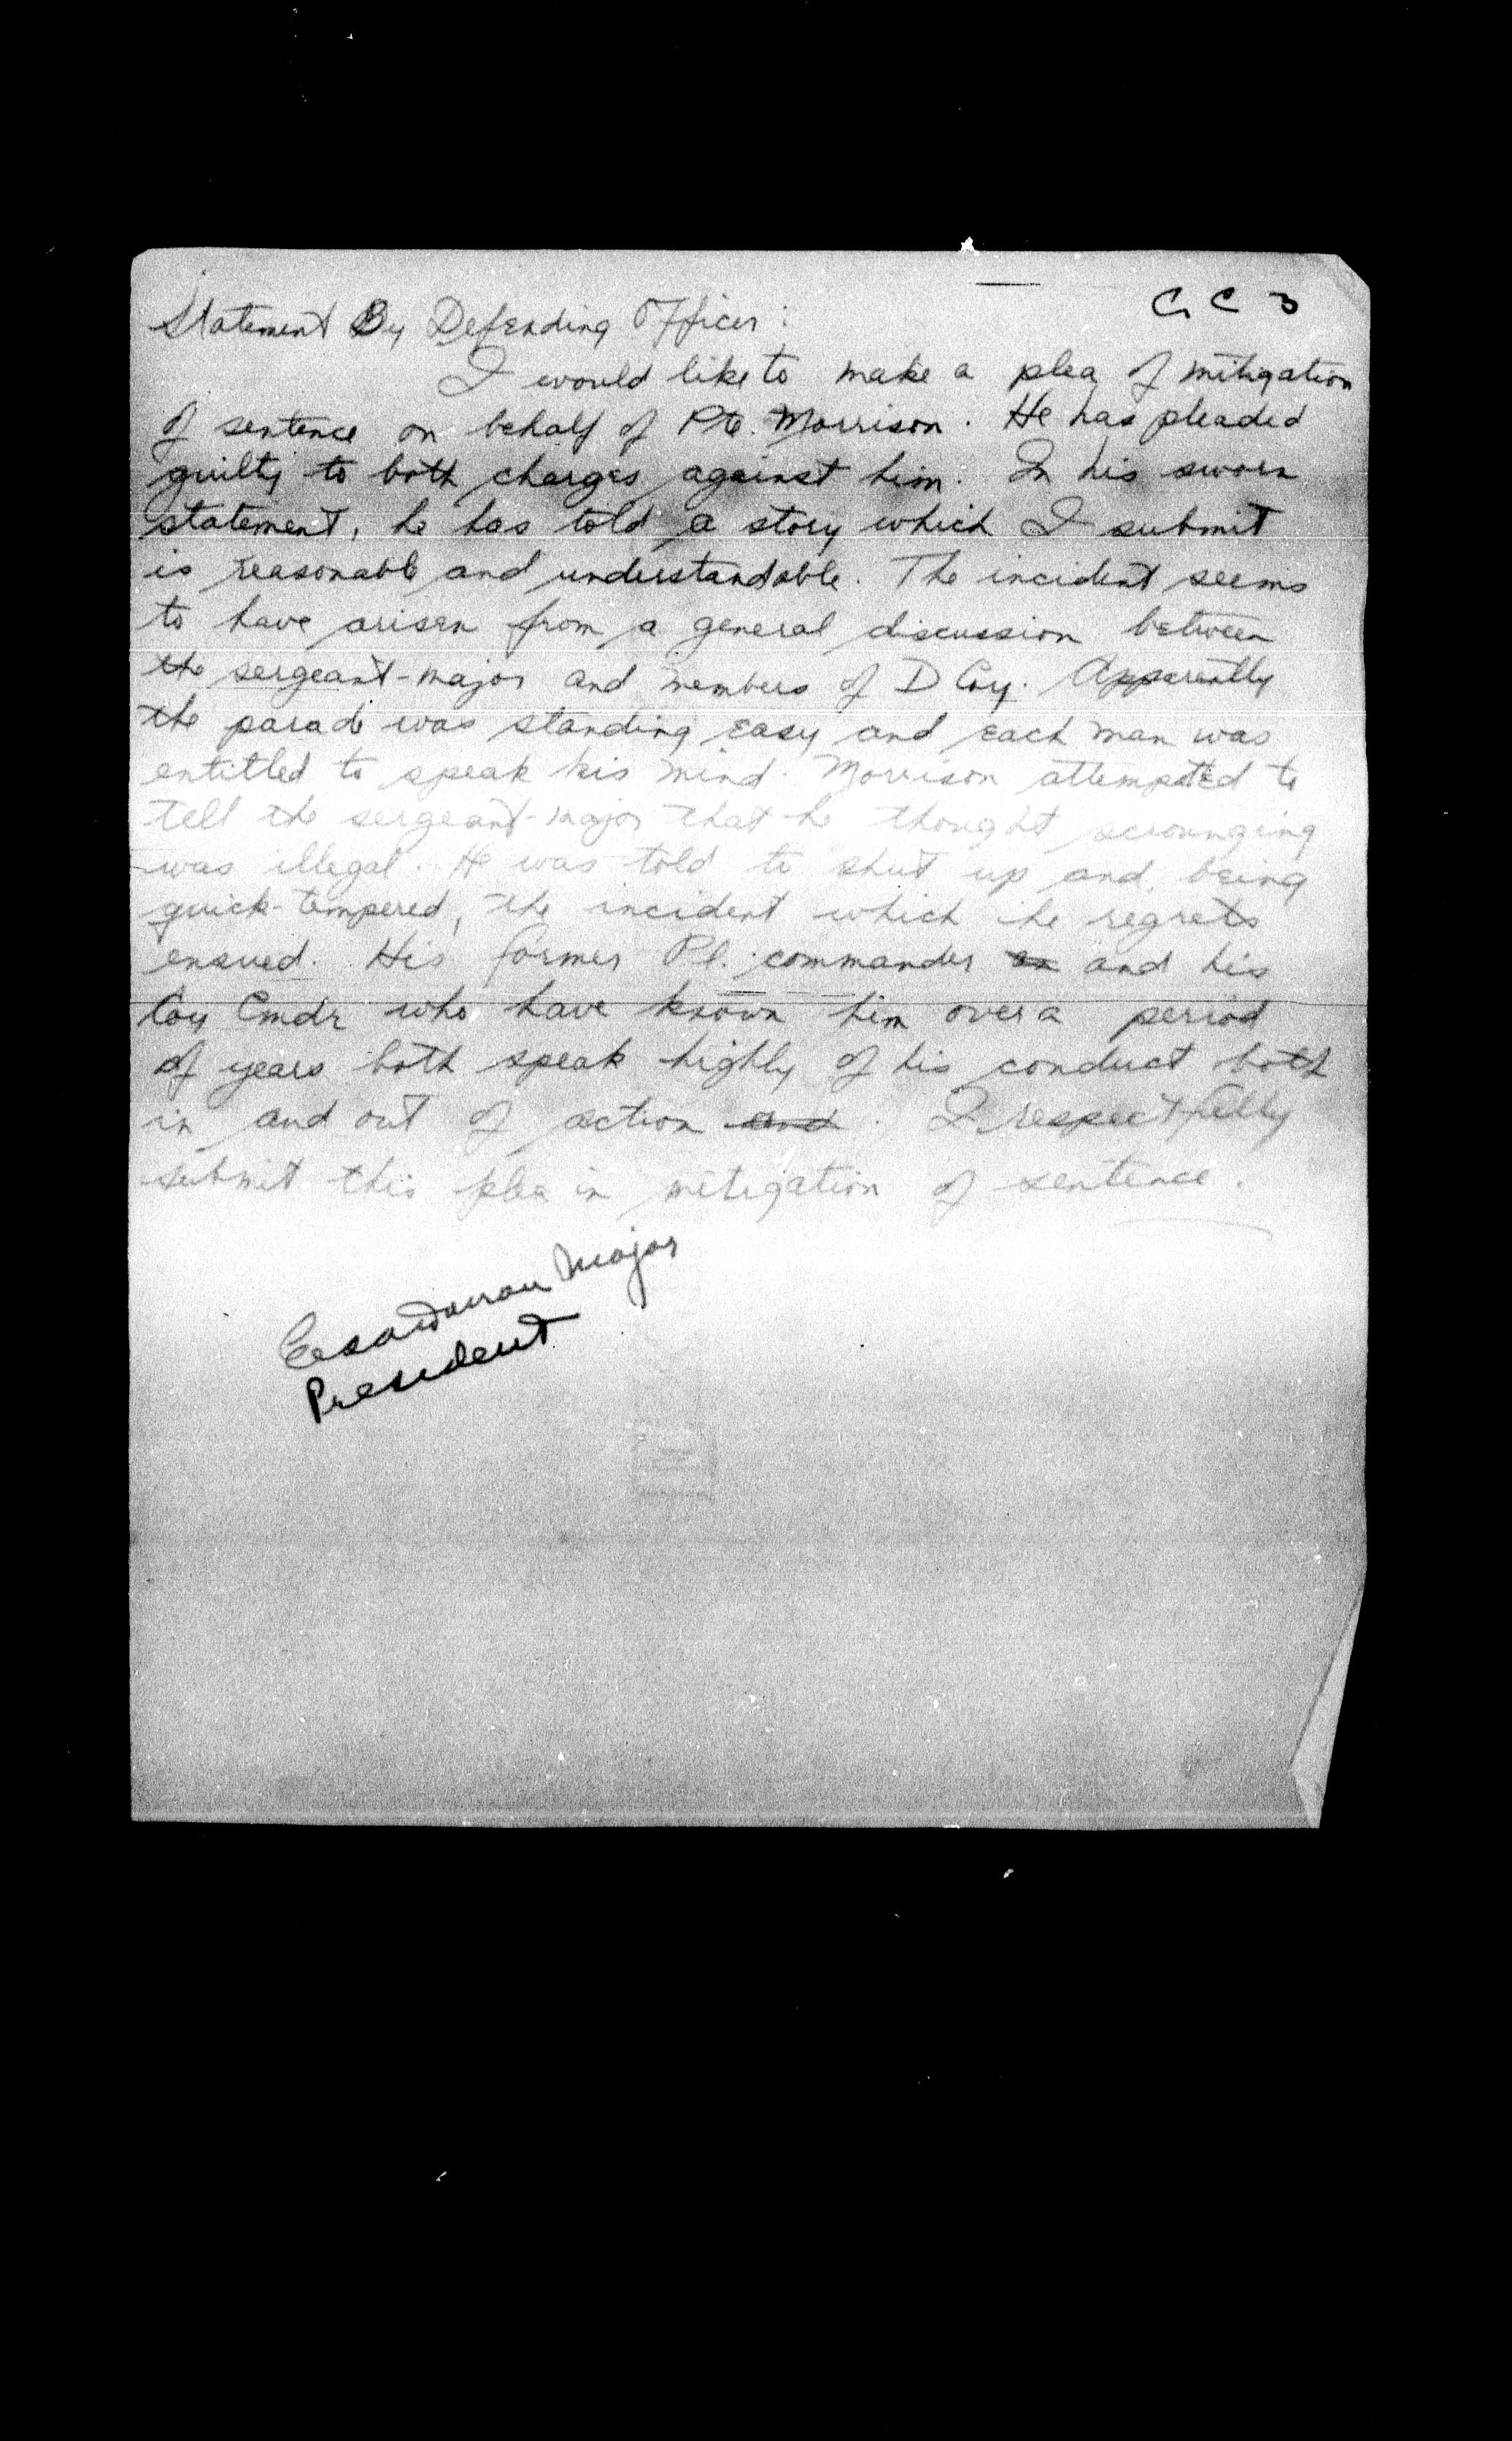 C C 3
Statement By Defending Officer :
I would like to make a plea of mitigation
of sentence on behalf of Pte. Morrison. He has pleaded
guilty to both charges against him. In his sworn
statement, he has told a story which I submit
is reasonable and understandable. The incident seems
to have arisen from a general discussion between
the sergeant-major and members of D Coy. Apparently
the parade was standing easy and each man was
entitled to speak his mind. Morrison attempted to
tell the sergeant-major that he thought scrounging
was illegal. He was told to shut up and, being
quick-tempered, the incident which he regrets
ensued. His former Pl. commander and his
Coy Cmdr who have known him over a period
of years both speak highly of his conduct both
in and out of action and. I respectfully
submit this plea in mitigation of sentence.
Major
President